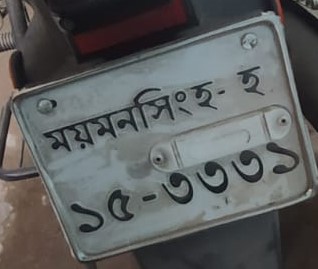 ময়মনসিংহ- হ
১৫-৩৩৩১